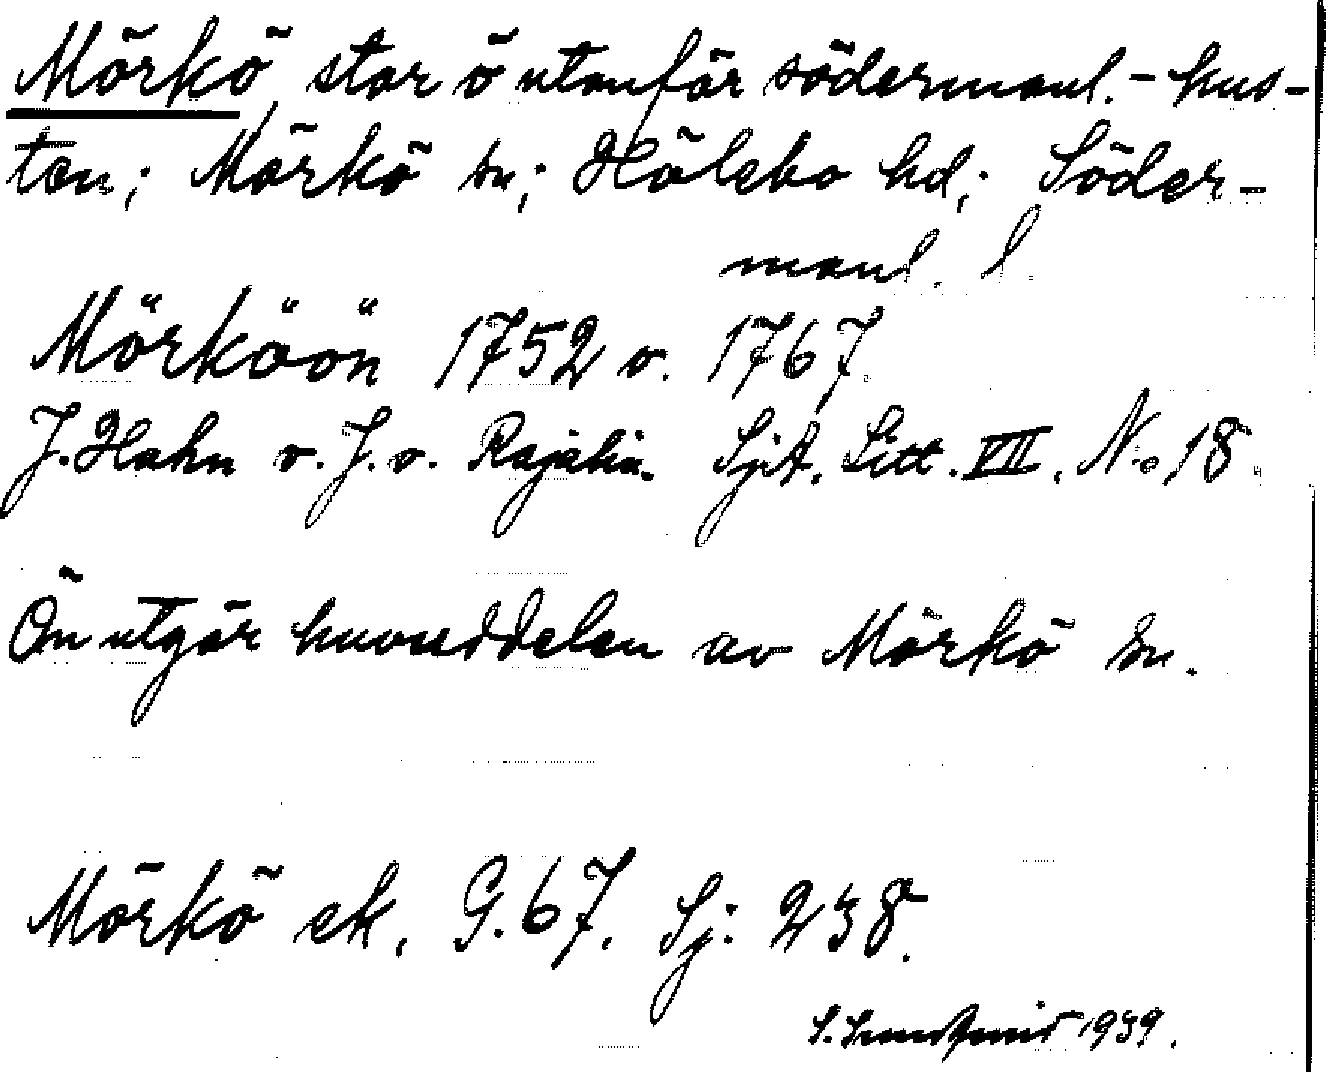 Mörkö, stor ö utanför södermanl.- kus-
ten; Mörkö sn; Hölebo hd; Söder-
manl. l.
Mörköön 1752 o. 1767
J. Hahn o. J. v. Rajalin. SjA. Litt. VII. No 18.
Ön utgör huvuddelen av Mörkö sn.
Mörkö ek. G. 67. Sj: 238.
1939.